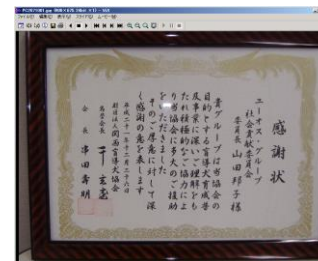 感謝状
ユーオス・グループ
社会貢献委員会
委員長 山田邦子 様
貴グループは当協会の
目的とする盲導犬育成普
及事業に深いご理解をも
たれ積極的なご協力によ
り当協会に多大のご援助
をいただきました
そのご厚意に対して深
く感謝の意を表します
財団法人関西盲導犬協会
名誉会長 千 玄室
会長 串田 壽明